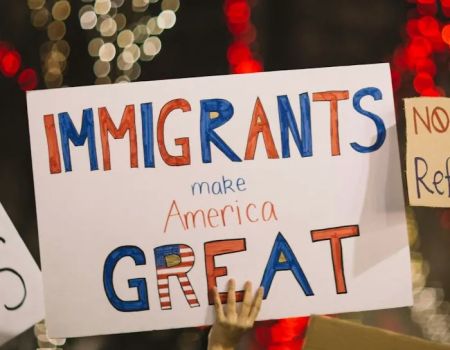 IMMIGRANTS
make
America
GREAT
NO
Ref
S